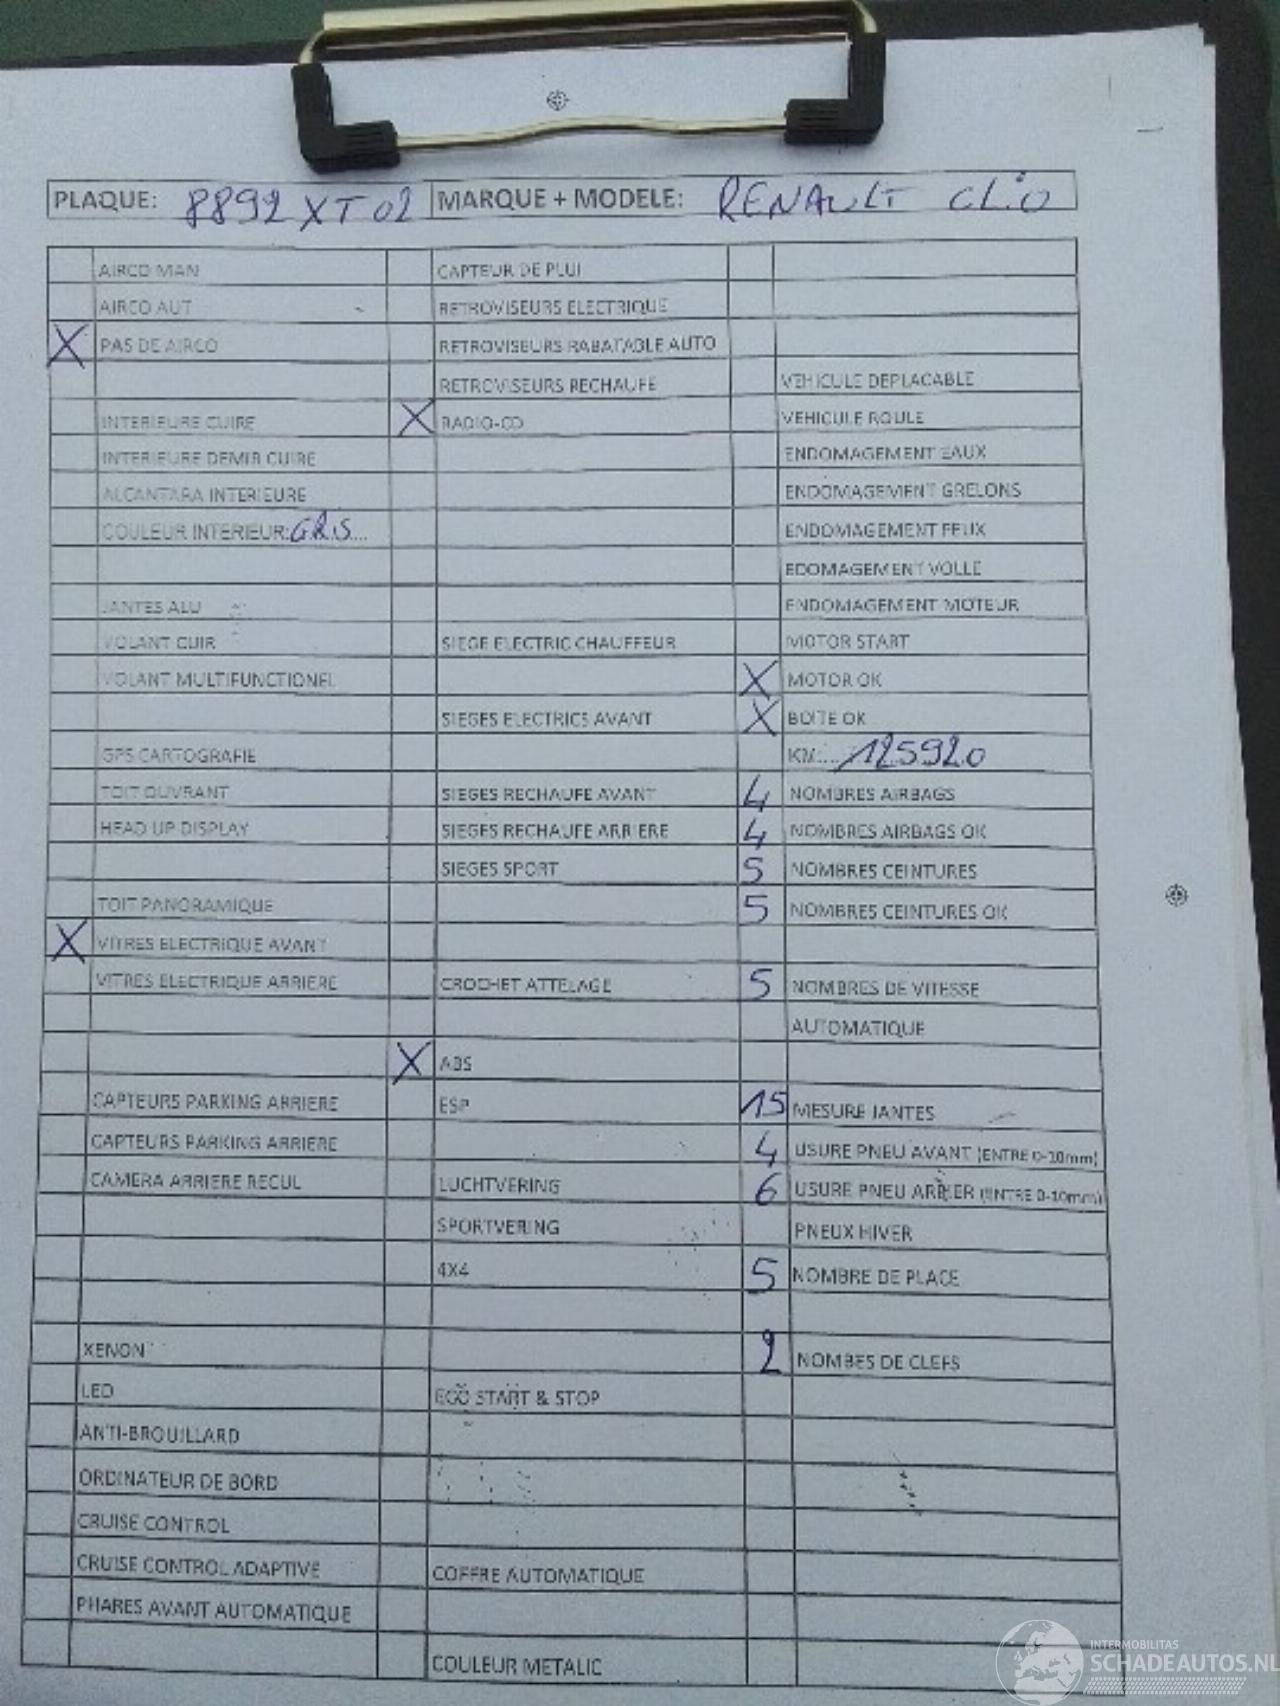 PLAQUE: 8892 XT 02 MARQUE + MODELE: RENAULT CLIO
AIRCO MAN CAPTEUR DE PLUI
AIRCO AUT RETROVISEURS ELECTRIQUE
X PAS DE AIRCO RETROVISEURS RABATABLE AUTO
RETROVISEURS RECHAUFE VEHICULE DEPLACABLE
INTERIEURE CUIRE X RADIO-CD VEHICULE ROULE
INTERIEURE DEMIR CUIRE ENDOMAGEMENT EAUX
ALCANTARA INTERIEURE ENDOMAGEMENT GRELONS
COULEUR INTERIEUR: GRIS... ENDOMAGEMENT FEUX
EDOMAGEMENT VOLLE
JANTES ALU ENDOMAGEMENT MOTEUR
VOLANT CUIR SIEGE ELECTRIC CHAUFFEUR MOTOR START
VOLANT MULTIFUNCTIONEL X MOTOR OK
SIEGES ELECTRICS AVANT X BOITE OK
GPS CARTOGRAFIE KM:... 125920
TOIT OUVRANT SIEGES RECHAUFE AVANT 4 NOMBRES AIRBAGS
HEAD UP DISPLAY SIEGES RECHAUFE ARRIERE 4 NOMBRES AIRBAGS OK
SIEGES SPORT 5 NOMBRES CEINTURES
TOIT PANORAMIQUE 5 NOMBRES CEINTURES OK
X VITRES ELECTRIQUE AVANT
VITRES ELECTRIQUE ARRIERE CROCHET ATTELAGE 5 NOMBRES DE VITESSE
AUTOMATIQUE
X ABS
CAPTEURS PARKING ARRIERE ESP 15 MESURE JANTES
CAPTEURS PARKING ARRIERE 4 USURE PNEU AVANT (ENTRE 0-10mm)
CAMERA ARRIERE RECUL LUCHTVERING 6 USURE PNEU ARRIER (ENTRE 0-10mm)
SPORTVERING PNEUX HIVER
4X4 5 NOMBRE DE PLACE
XENON 2 NOMBES DE CLEFS
LED ECO START & STOP
ANTI-BROUILLARD
ORDINATEUR DE BORD
CRUISE CONTROL
CRUISE CONTROL ADAPTIVE COFFRE AUTOMATIQUE
PHARES AVANT AUTOMATIQUE
COULEUR METALIC
INTERMOBILITAS
SCHADEAUTOS.NL